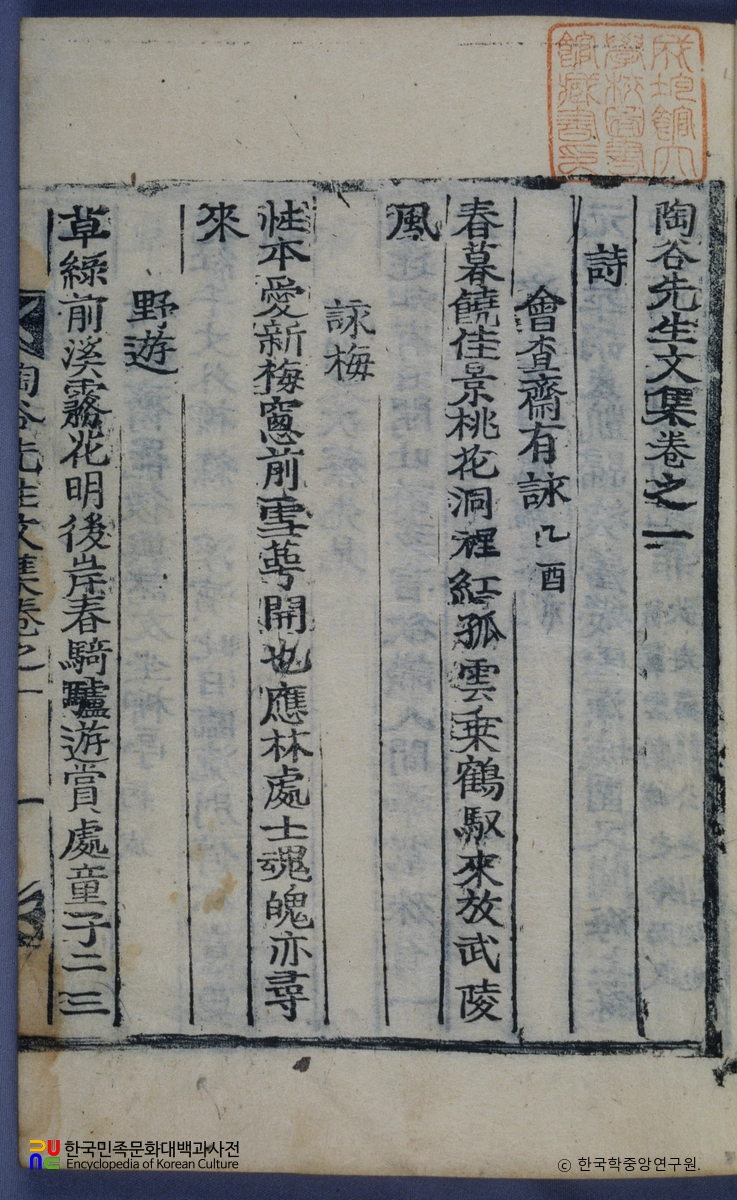 成均館大
學校圖書
館藏書印
陶谷先生文集卷之一
詩
會查齋有詠 乙酉
春暮饒佳景桃花洞裡紅孤雲乗鶴馭來放武陵
風
詠梅
性本愛新梅窓前雪萼開也應林處士魂魄亦尋
來
野遊
草綠前溪霧花明後岸春騎驢遊賞處童子二三
陶谷先生文集卷之一 一
한국민족문화대백과사전
Encyclopedia of Korean Culture
© 한국학중앙연구원.